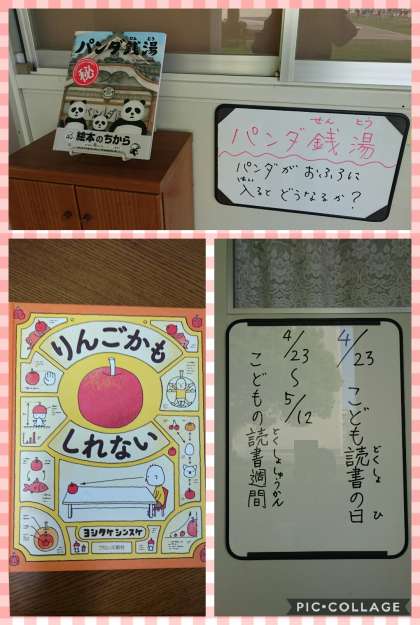 パンダ銭湯
せん とう
秘
絵本のちから
せん とう
パンダ銭湯
パンダが おふろに
はい
入ると どうなるか?
りんごかも
しれない
ヨシタケシンスケ
ブロンズ新社
4/23 こども読書の日
どくしょ ひ
4/23〜5/12
こどもの読書週間
どくしょしゅうかん
PIC•COLLAGE